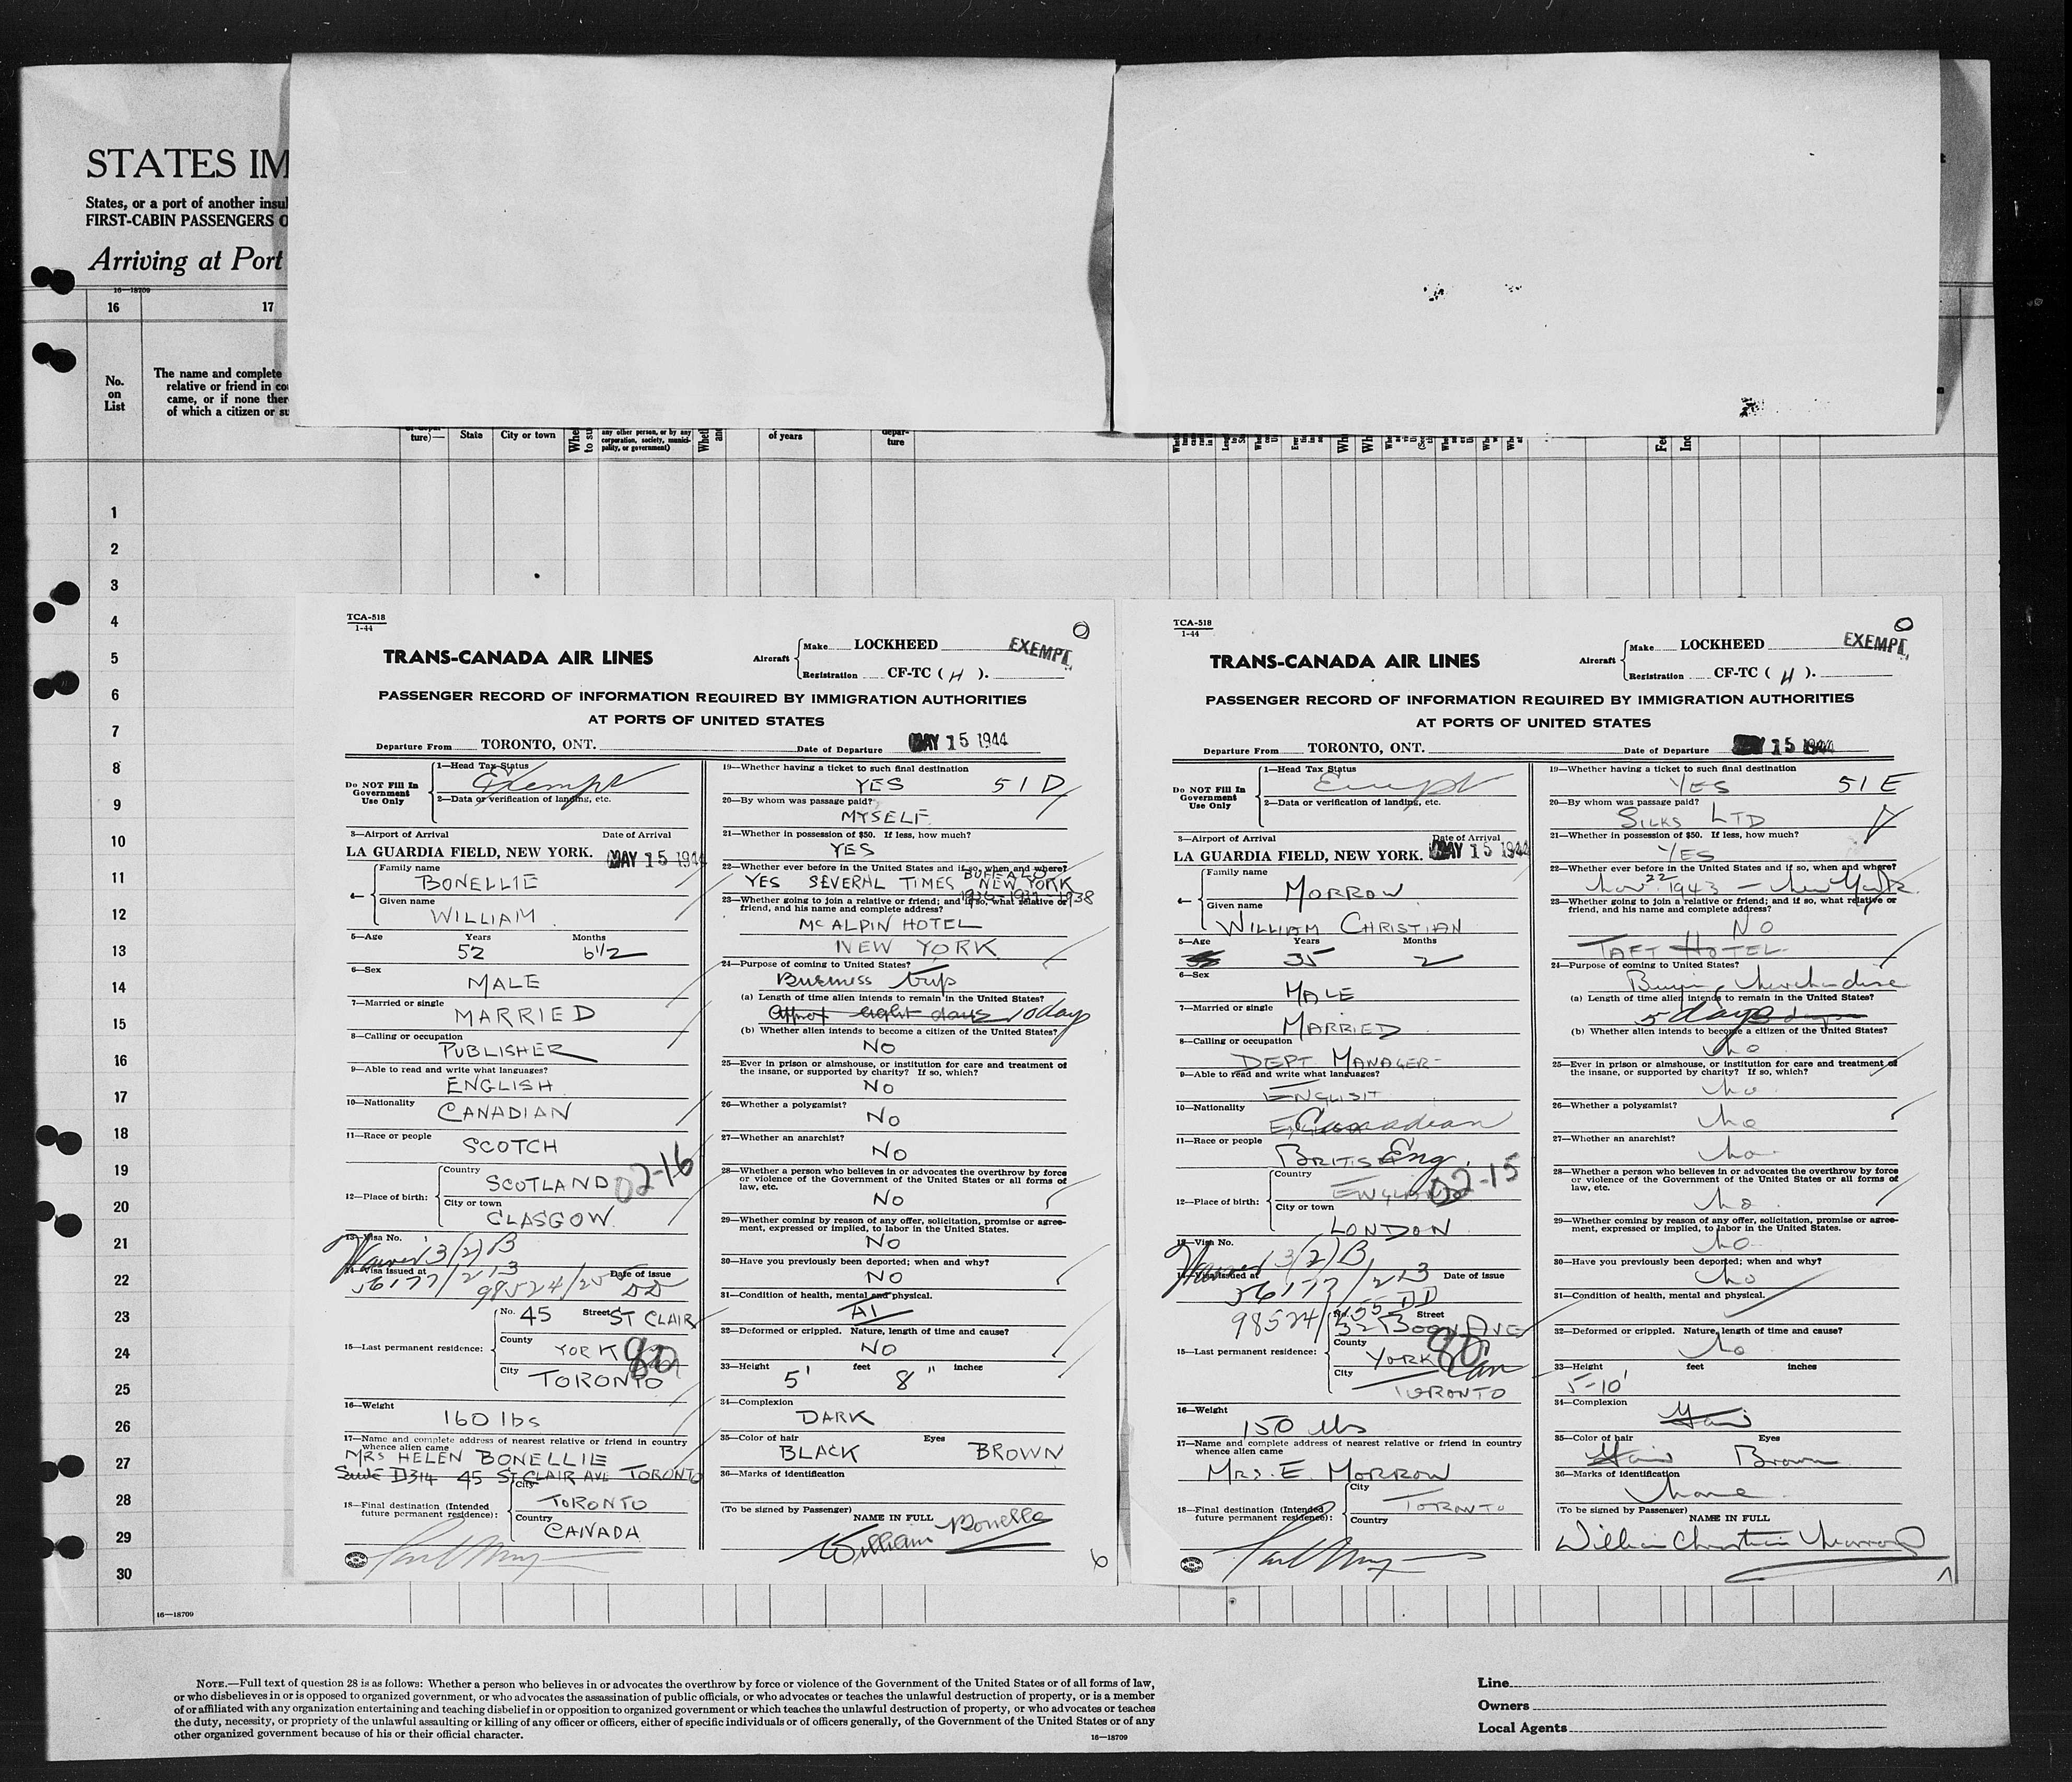 STATES IM
States, or a port of another insul
FIRST-CABIN PASSENGERS O
Arriving at Port
16—18709
16 17
No.
on
List
The name and complete
relative or friend in cou
came, or if none ther
of which a citizen or su
ture)—
State
City or town
any other person, or by any
corporation, society, munici-
pality, or government)
of years
depar-
ture
1
2
3
4
5
6
7
8
9
10
11
12
13
14
15
16
17
18
19
20
21
22
23
24
25
26
27
28
29
30
TCA-518
1-44
TRANS-CANADA AIR LINES
Aircraft
Make LOCKHEED
Registration CF-TC ( H ).
EXEMPT
PASSENGER RECORD OF INFORMATION REQUIRED BY IMMIGRATION AUTHORITIES
AT PORTS OF UNITED STATES
Departure From TORONTO, ONT. Date of Departure MAY 15 1944
Do NOT Fill In
Government
Use Only
1—Head Tax Status
Exempt
2—Data or verification of landing, etc.
3—Airport of Arrival Date of Arrival
LA GUARDIA FIELD, NEW YORK. MAY 15 1944
4— Family name
BONELLIE
Given name
WILLIAM
5—Age Years Months
52 6 1/2
6—Sex
MALE
7—Married or single
MARRIED
8—Calling or occupation
PUBLISHER
9—Able to read and write what languages?
ENGLISH
10—Nationality
CANADIAN
11—Race or people
SCOTCH
12—Place of birth:
Country
SCOTLAND 02-16
City or town
GLASGOW
13—Visa No.
Waiver 3/(2)B
14—Visa issued at Date of issue
56177/213
98524/25 DD
15—Last permanent residence:
No. 45 Street ST CLAIR
County
YORK 90
City
TORONTO
16—Weight
160 lbs
17—Name and complete address of nearest relative or friend in country
whence alien came
MRS HELEN BONELLIE
Suite D314 45 ST CLAIR AVE TORONTO
18—Final destination (Intended
future permanent residence):
City
TORONTO
Country
CANADA
19—Whether having a ticket to such final destination
YES 51 D
20—By whom was passage paid?
MYSELF
21—Whether in possession of $50. If less, how much?
YES
22—Whether ever before in the United States and if so, when and where?
BUFFALO
YES SEVERAL TIMES NEW YORK
1938
23—Whether going to join a relative or friend; and if so, what relative or
friend, and his name and complete address?
MC ALPIN HOTEL
NEW YORK
24—Purpose of coming to United States?
Business trip
(a) Length of time alien intends to remain in the United States?
eight days 10 days
(b) Whether alien intends to become a citizen of the United States?
NO
25—Ever in prison or almshouse, or institution for care and treatment of
the insane, or supported by charity? If so, which?
NO
26—Whether a polygamist?
NO
27—Whether an anarchist?
NO
28—Whether a person who believes in or advocates the overthrow by force
or violence of the Government of the United States or all forms of
law, etc.
NO
29—Whether coming by reason of any offer, solicitation, promise or agree-
ment, expressed or implied, to labor in the United States.
NO
30—Have you previously been deported; when and why?
NO
31—Condition of health, mental and physical.
A1
32—Deformed or crippled. Nature, length of time and cause?
NO
33—Height feet inches
5' 8"
34—Complexion
DARK
35—Color of hair Eyes
BLACK BROWN
36—Marks of identification
(To be signed by Passenger)
NAME IN FULL
William Bonellie
6
TCA-518
1-44
TRANS-CANADA AIR LINES
Aircraft
Make LOCKHEED
Registration CF-TC ( H ).
EXEMPT
PASSENGER RECORD OF INFORMATION REQUIRED BY IMMIGRATION AUTHORITIES
AT PORTS OF UNITED STATES
Departure From TORONTO, ONT. Date of Departure MAY 15 1944
Do NOT Fill In
Government
Use Only
1—Head Tax Status
Exempt
2—Data or verification of landing, etc.
3—Airport of Arrival Date of Arrival
LA GUARDIA FIELD, NEW YORK. MAY 15 1944
4— Family name
MORROW
Given name
WILLIAM CHRISTIAN
5—Age Years Months
35 2
6—Sex
MALE
7—Married or single
MARRIED
8—Calling or occupation
DEPT MANAGER
9—Able to read and write what languages?
ENGLISH
10—Nationality
Canadian
11—Race or people
BRITISH Eng.
12—Place of birth:
Country
ENGLAND 02-15
City or town
LONDON
13—Visa No.
Waiver 3/(2)B
14—Visa issued at Date of issue
56177/213
98524/155 DD
15—Last permanent residence:
No. Street
32 BOON AVE
County
YORK 90 Can
City
TORONTO
16—Weight
150 lbs
17—Name and complete address of nearest relative or friend in country
whence alien came
MRS. E. MORROW
18—Final destination (Intended
future permanent residence):
City
TORONTO
Country
19—Whether having a ticket to such final destination
YES 51 E
20—By whom was passage paid?
SILKS LTD
21—Whether in possession of $50. If less, how much?
YES
22—Whether ever before in the United States and if so, when and where?
Nov. 22 1943 — New York
23—Whether going to join a relative or friend; and if so, what relative or
friend, and his name and complete address?
NO
TAFT HOTEL
24—Purpose of coming to United States?
Buying Merchandise
(a) Length of time alien intends to remain in the United States?
5 days
(b) Whether alien intends to become a citizen of the United States?
no
25—Ever in prison or almshouse, or institution for care and treatment of
the insane, or supported by charity? If so, which?
no
26—Whether a polygamist?
no
27—Whether an anarchist?
no
28—Whether a person who believes in or advocates the overthrow by force
or violence of the Government of the United States or all forms of
law, etc.
no
29—Whether coming by reason of any offer, solicitation, promise or agree-
ment, expressed or implied, to labor in the United States.
no
30—Have you previously been deported; when and why?
no
31—Condition of health, mental and physical.
32—Deformed or crippled. Nature, length of time and cause?
no
33—Height feet inches
5-10'
34—Complexion
Fair
35—Color of hair Eyes
Fair Brown
36—Marks of identification
None
(To be signed by Passenger)
NAME IN FULL
William Christian Morrow
16—18709
NOTE.—Full text of question 28 is as follows: Whether a person who believes in or advocates the overthrow by force or violence of the Government of the United States or of all forms of law,
or who disbelieves in or is opposed to organized government, or who advocates the assassination of public officials, or who advocates or teaches the unlawful destruction of property, or is a member
of or affiliated with any organization entertaining and teaching disbelief in or opposition to organized government or which teaches the unlawful destruction of property, or who advocates or teaches
the duty, necessity, or propriety of the unlawful assaulting or killing of any officer or officers, either of specific individuals or of officers generally, of the Government of the United States or of any
other organized government because of his or their official character.
16—18709
Line
Owners
Local Agents